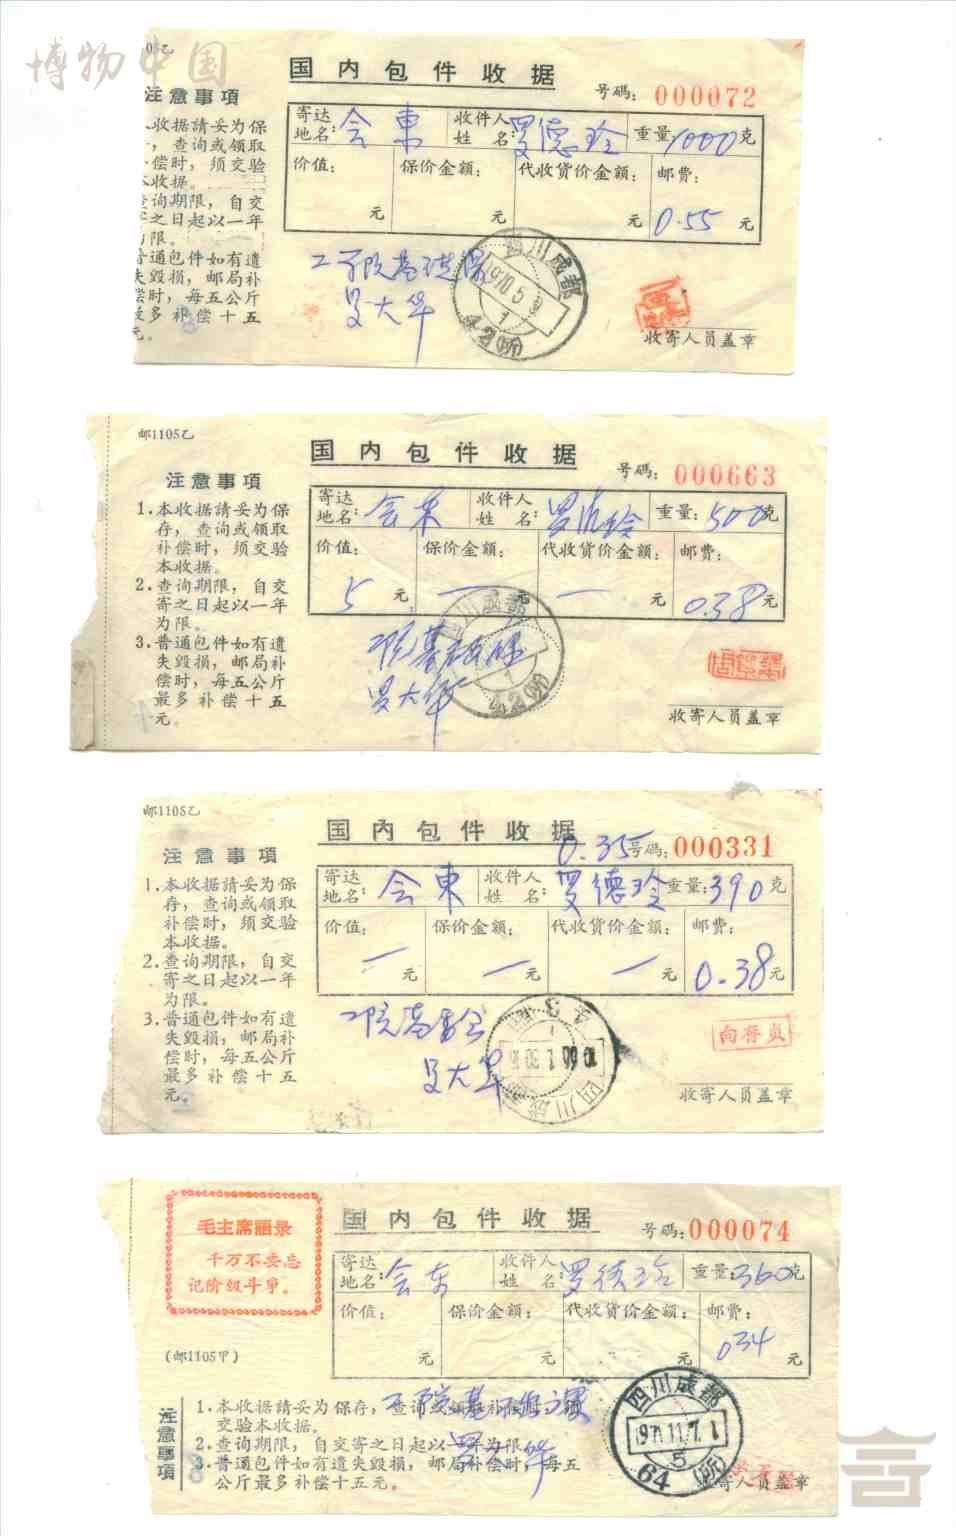 博物中国
05乙
国内包件收据
号码: 000072
注意事項
收据請妥为保
, 查询或领取
偿时, 须交验
本收据。
查询期限, 自交
寄之日起以一年
为限。
普通包件如有遺
失毁損, 邮局补
偿时, 每五公斤
最多补偿十五
元。
寄达地名: 会東
收件人姓名: 罗德玲
重量: 1000克
价值: 元
保价金額: 元
代收货价金額: 元
邮费: 0.55 元
罗大华
四川成都
1970.5
1
42(所)
收寄人员盖章
邮1105乙
国内包件收据
号码: 000663
注意事項
1. 本收据請妥为保
存, 查询或领取
补偿时, 须交验
本收据。
2. 查询期限, 自交
寄之日起以一年
为限。
3. 普通包件如有遺
失毁損, 邮局补
偿时, 每五公斤
最多补偿十五
元。
寄达地名: 会东
收件人姓名: 罗德玲
重量: 500克
价值: 5 元
保价金額: 一 元
代收货价金額: 一 元
邮费: 0.38 元
罗大华
四川成都
1
42(所)
收寄人员盖章
邮1105乙
国内包件收据
0.35
号码: 000331
注意事項
1. 本收据請妥为保
存, 查询或领取
补偿时, 须交验
本收据。
2. 查询期限, 自交
寄之日起以一年
为限。
3. 普通包件如有遺
失毁損, 邮局补
偿时, 每五公斤
最多补偿十五
元。
寄达地名: 会東
收件人姓名: 罗德玲
重量: 390克
价值: 一 元
保价金額: 一 元
代收货价金額: 一 元
邮费: 0.38 元
罗大华
四川成都
收寄人员盖章
毛主席語录
千万不要忘
记阶级斗爭。
国内包件收据
号码: 000074
寄达地名: 会东
收件人姓名: 罗德玲
重量: 360克
价值: 元
保价金額: 元
代收货价金額: 元
邮费: 034 元
(邮1105甲)
注意事項
1. 本收据請妥为保存, 查询或领取补偿时, 须
交验本收据。
2. 查询期限, 自交寄之日起以一年为限。
3. 普通包件如有遺失毁損, 邮局补偿时, 每五
公斤最多补偿十五元。
罗大华
四川成都
1971.11.7.1
5
64 (所)
收寄人员盖章